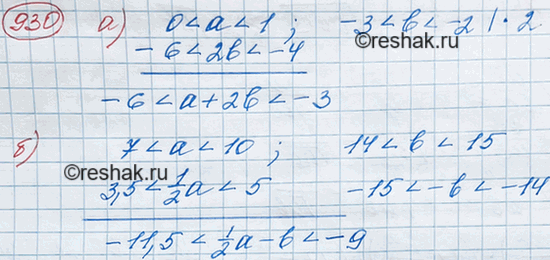 930 а) 0 < a < 1 ; -3 < b < -2 | · 2
©reshak.ru
-6 < 2b < -4
-6 < a + 2b < -3
б) 7 < a < 10 ; 14 < b < 15
©reshak.ru
3,5 < 1/2 a < 5 -15 < -b < -14
-11,5 < 1/2 a - b < -9